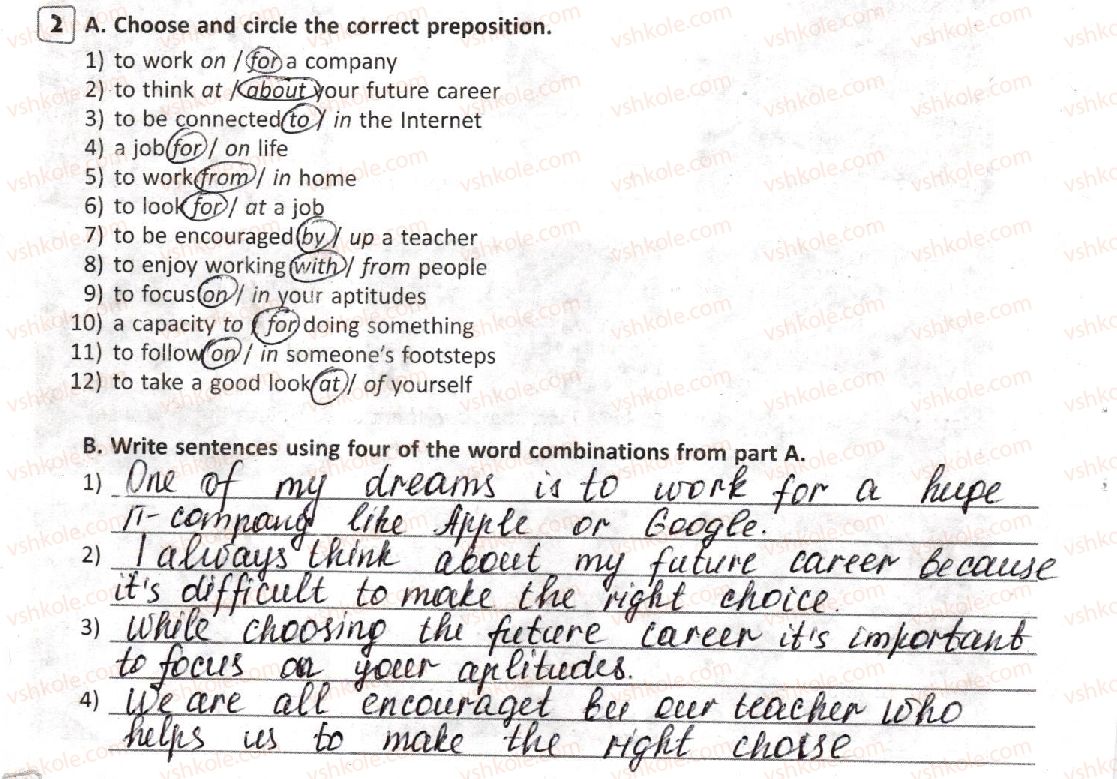 2 A. Choose and circle the correct preposition.
1) to work on / for a company
2) to think at / about your future career
3) to be connected to / in the Internet
4) a job for / on life
5) to work from / in home
6) to look for / at a job
7) to be encouraged by / up a teacher
8) to enjoy working with / from people
9) to focus on / in your aptitudes
10) a capacity to / for doing something
11) to follow on / in someone's footsteps
12) to take a good look at / of yourself
B. Write sentences using four of the word combinations from part A.
1) One of my dreams is to work for a huge
IT-company like Apple or Google.
2) I always think about my future career because
it's difficult to make the right choice.
3) While choosing the future career it's important
to focus on your aplitudes.
4) We are all encouraget by our teacher who
helps us to make the right choise
vshkole.com